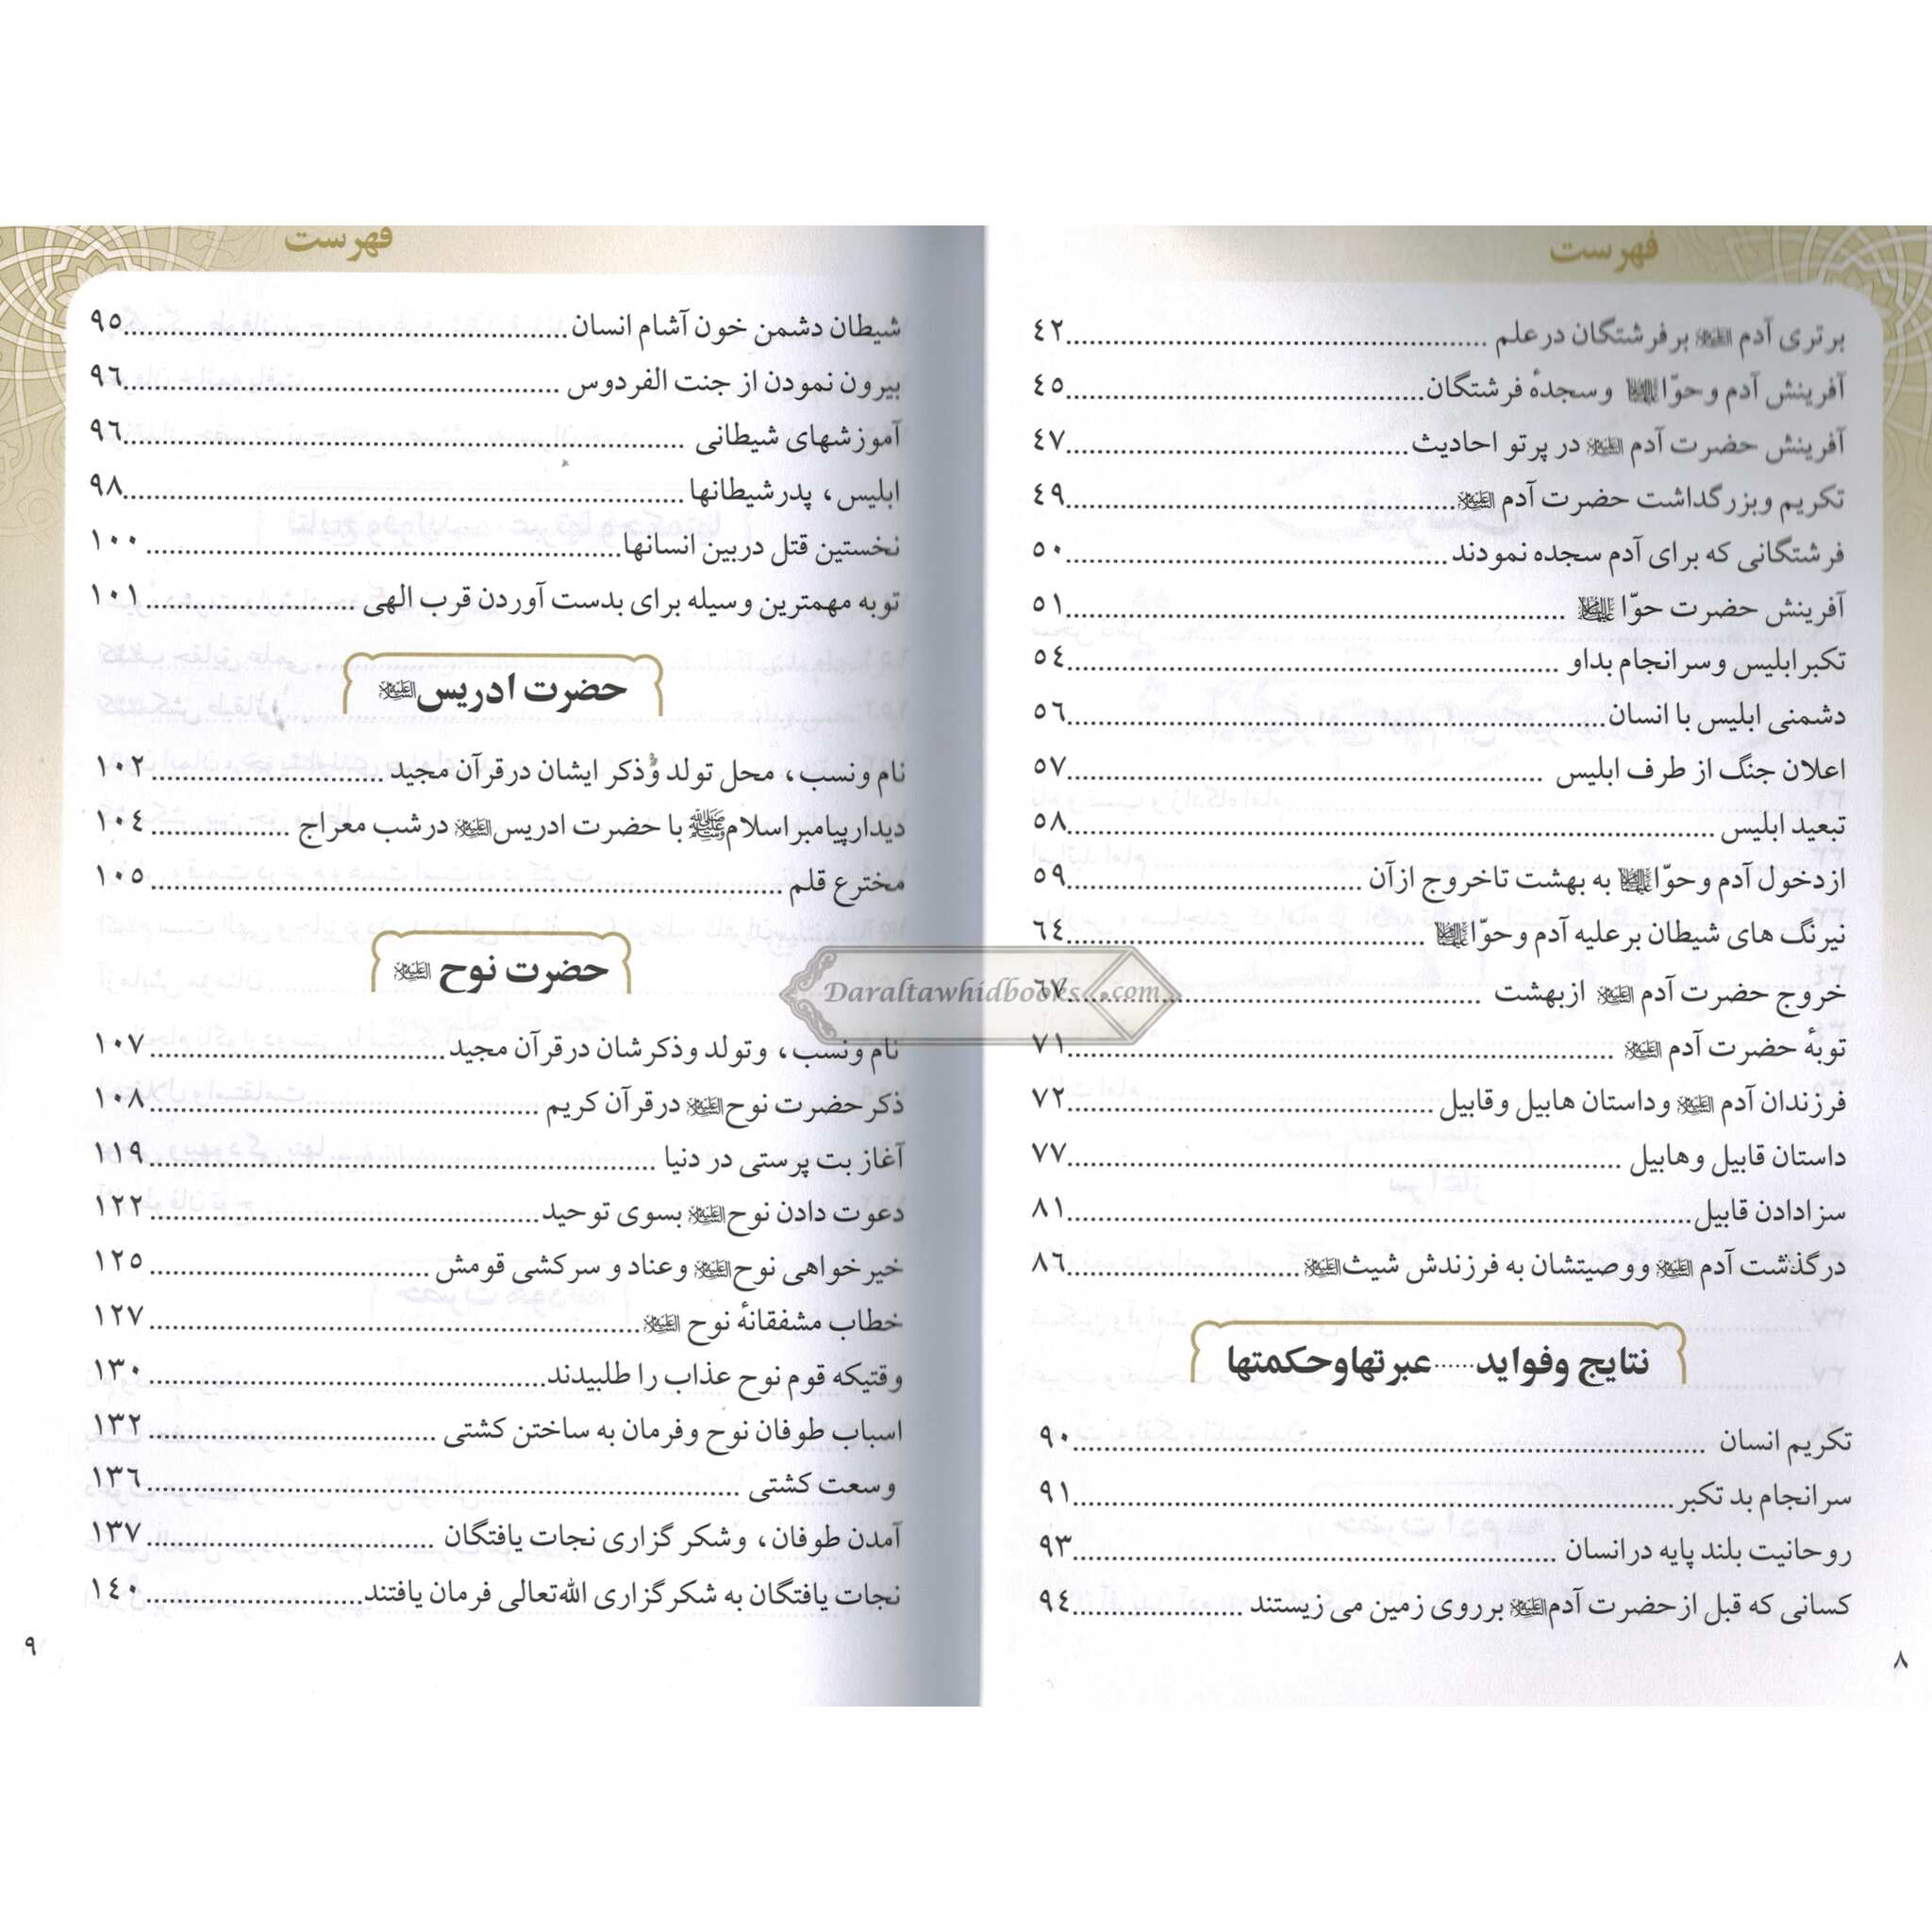 فهرست
برتری آدم علیه السلام برفرشتگان درعلم ........ ٤٢
آفرینش آدم وحوّا علیهما السلام وسجدهٔ فرشتگان ........ ٤٥
آفرینش حضرت آدم علیه السلام در پرتو احادیث ........ ٤٧
تکریم وبزرگداشت حضرت آدم علیه السلام ........ ٤٩
فرشتگانی که برای آدم سجده نمودند ........ ٥٠
آفرینش حضرت حوّا علیها السلام ........ ٥١
تکبرابلیس وسرانجام بداو ........ ٥٤
دشمنی ابلیس با انسان ........ ٥٦
اعلان جنگ از طرف ابلیس ........ ٥٧
تبعید ابلیس ........ ٥٨
ازدخول آدم وحوّا علیهما السلام به بهشت تاخروج ازآن ........ ٥٩
نیرنگ های شیطان برعلیه آدم وحوّا علیهما السلام ........ ٦٤
خروج حضرت آدم علیه السلام ازبهشت ........ ٦٧
توبهٔ حضرت آدم علیه السلام ........ ٧١
فرزندان آدم علیه السلام وداستان هابیل وقابیل ........ ٧٢
داستان قابیل وهابیل ........ ٧٧
سزادادن قابیل ........ ٨١
درگذشت آدم علیه السلام ووصیتشان به فرزندش شیث علیه السلام ........ ٨٦
نتایج وفواید......عبرتهاوحکمتها
تکریم انسان ........ ٩٠
سرانجام بد تکبر ........ ٩١
روحانیت بلند پایه درانسان ........ ٩٣
کسانی که قبل ازحضرت آدم علیه السلام برروی زمین می زیستند ........ ٩٤
٨
فهرست
شیطان دشمن خون آشام انسان ........ ٩٥
بیرون نمودن از جنت الفردوس ........ ٩٦
آموزشهای شیطانی ........ ٩٦
ابلیس، پدرشیطانها ........ ٩٨
نخستین قتل دربین انسانها ........ ١٠٠
توبه مهمترین وسیله برای بدست آوردن قرب الهی ........ ١٠١
حضرت ادریس علیه السلام
نام ونسب، محل تولد وذکر ایشان درقرآن مجید ........ ١٠٢
دیدارپیامبراسلام ﷺ با حضرت ادریس علیه السلام درشب معراج ........ ١٠٤
مخترع قلم ........ ١٠٥
حضرت نوح علیه السلام
نام ونسب، وتولد وذکرشان درقرآن مجید ........ ١٠٧
ذکرحضرت نوح علیه السلام درقرآن کریم ........ ١٠٨
آغاز بت پرستی در دنیا ........ ١١٩
دعوت دادن نوح علیه السلام بسوی توحید ........ ١٢٢
خیرخواهی نوح علیه السلام وعناد و سرکشی قومش ........ ١٢٥
خطاب مشفقانهٔ نوح علیه السلام ........ ١٢٧
وقتیکه قوم نوح عذاب را طلبیدند ........ ١٣٠
اسباب طوفان نوح وفرمان به ساختن کشتی ........ ١٣٢
وسعت کشتی ........ ١٣٦
آمدن طوفان، وشکر گزاری نجات یافتگان ........ ١٣٧
نجات یافتگان به شکرگزاری الله‌تعالی فرمان یافتند ........ ١٤٠
٩
Daraltawhidbooks.com